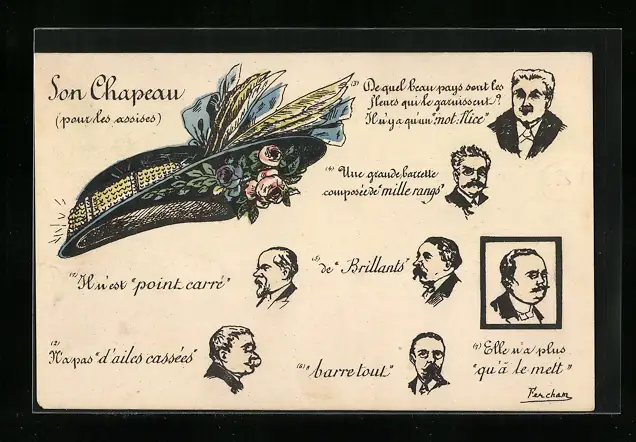 Son Chapeau
(pour les assises)
(1) Il n'est "point carré"
(2) N'a pas "d'ailes cassées"
(3) De quel beau pays sont les
fleurs qui le garnissent?
Il n'y a qu'un "mot: Nice"
(4) Une grande barrette
composée de "mille rangs"
(5) de "Brillants"
(6) "barre tout"
(7) Elle n'a plus
"qu'à le mett"
Fercham